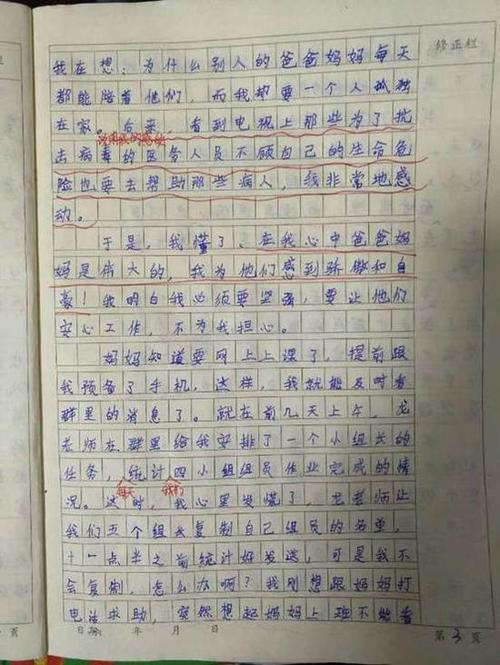 修正栏
我在想:为什么别人的爸爸妈妈每天
都能陪着他们,而我却要一个人孤独
在家。后来,看到电视上那些为了抗
击病毒的医务人员不顾自己的生命危
险也要去帮助那些病人,我非常地感
动。
于是,我懂了、在我心中爸爸妈
妈是伟大的,我为他们感到骄傲和自
豪!我明白我必须要坚强,要让他们
安心工作,不为我担心。
妈妈知道要网上上课了,提前跟
我预备了手机,这样,我就能及时看
群里的消息了。就在前几天上午,龙
老师在群里给我安排了一个小组长的
任务,统计四小组组员作业完成的情
每天 我们
况。这时,我心里发慌了,龙老师让
我们五个组长复制自己组员的名单,
十一点半之前统计好发送,可是我不
会复制,怎么办啊?我刚想跟妈妈打
电话求助,突然想起妈妈上班不能看
日期: 年 月 日 第3页